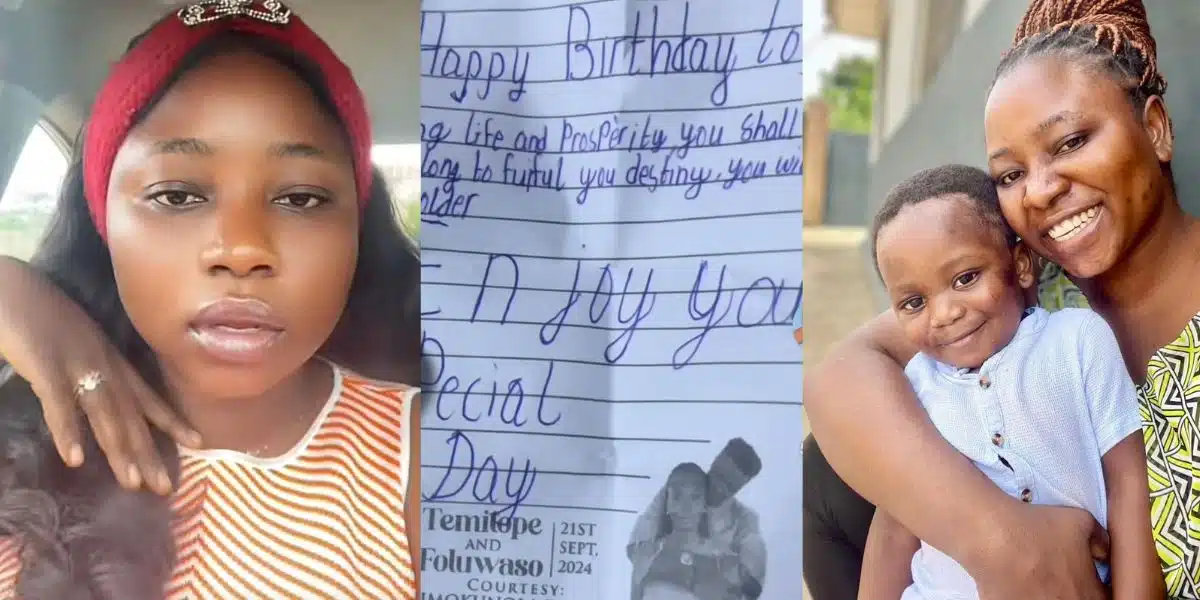 Happy Birthday to
g life and Prosperity you Shall
long to fulful you destiny. you wi
older
EnJoy You
Special
Day
Temitope
AND
Foluwaso
21ST
SEPT,
2024
COURTESY: